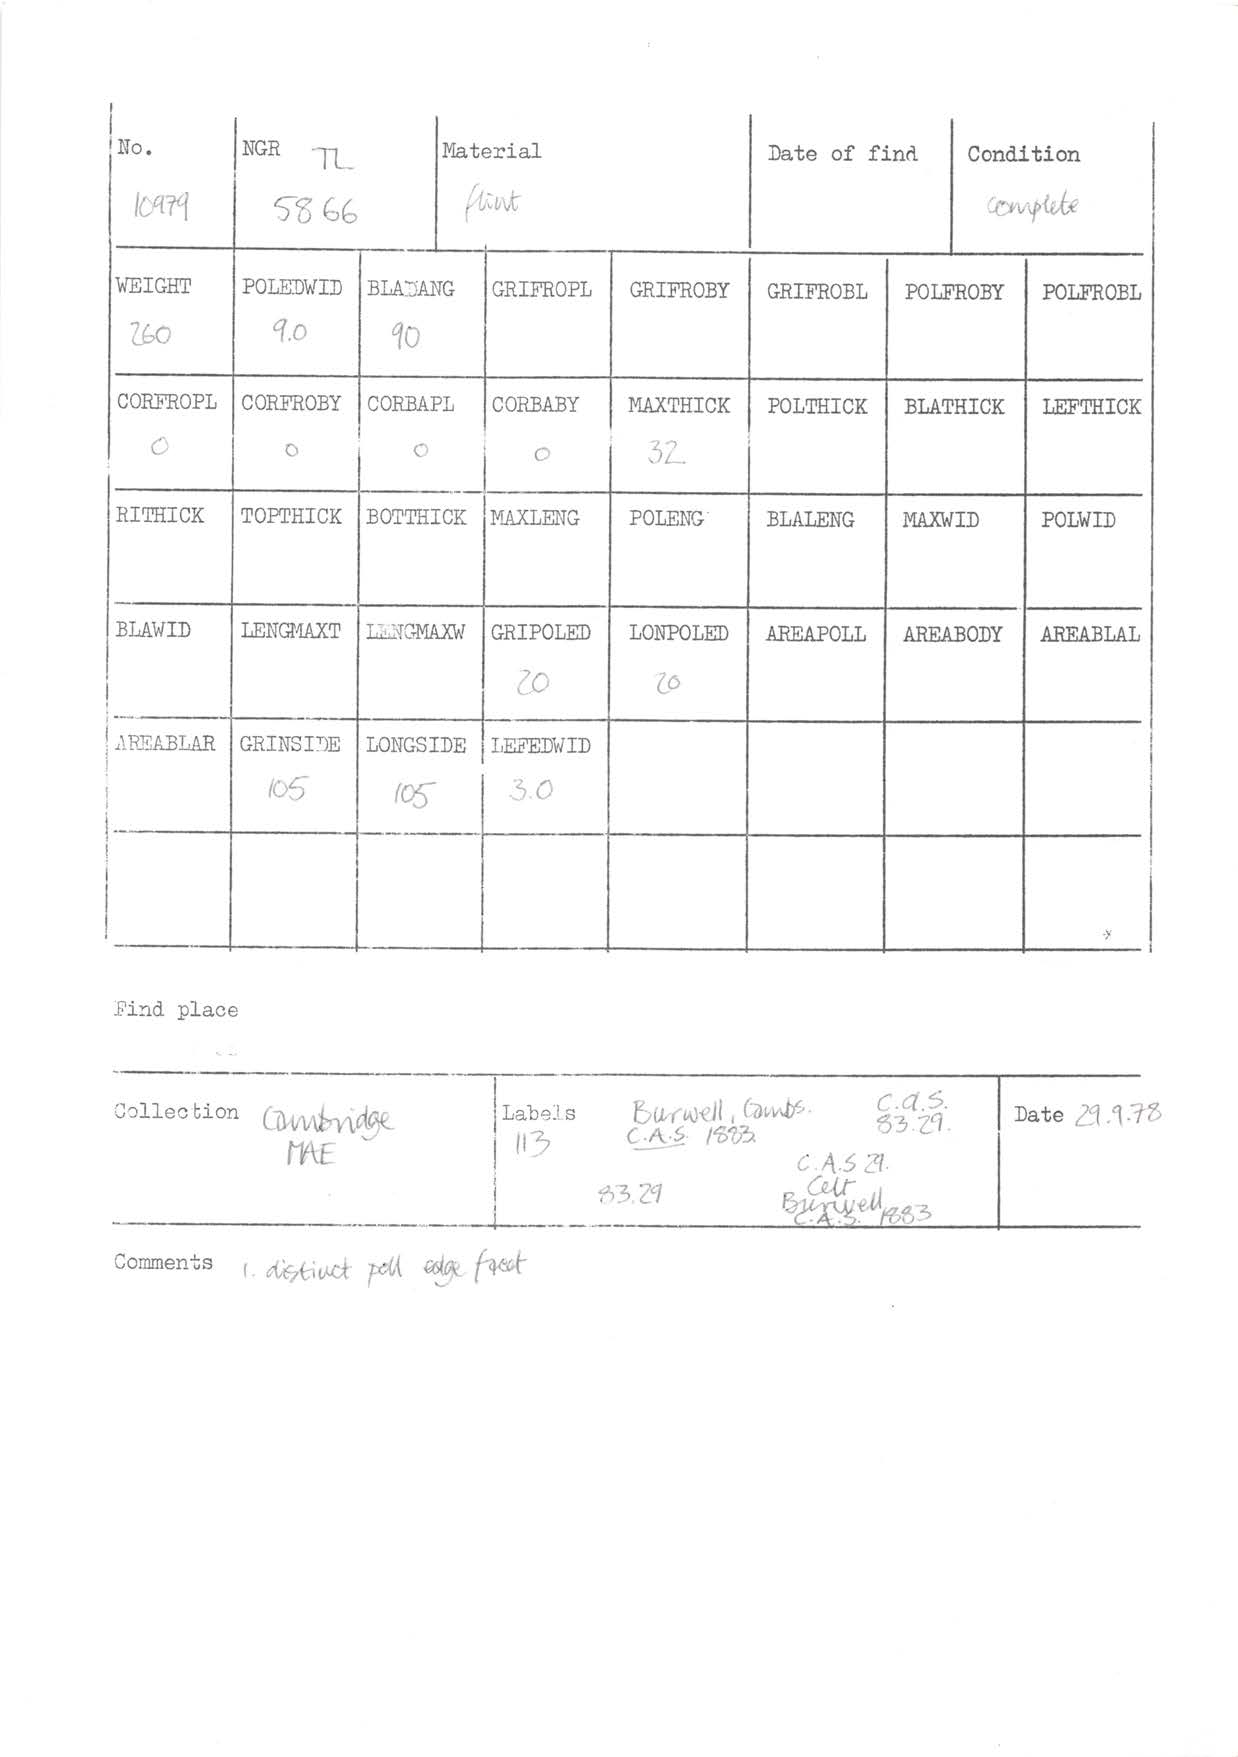 No. NGR TL Material Date of find Condition
10979 5866 flint complete
WEIGHT POLEDWID BLADANG GRIFROPL GRIFROBY GRIFROBL POLFROBY POLFROBL
260 9.0 90
CORFROPL CORFROBY CORBAPL CORBABY MAXTHICK POLTHICK BLATHICK LEFTHICK
0 0 0 0 32
RITHICK TOPTHICK BOTTHICK MAXLENG POLENG BLALENG MAXWID POLWID
BLAWID LENGMAXT LENGMAXW GRIPOLED LONPOLED AREAPOLL AREABODY AREABLAL
20 20
AREABLAR GRINSIDE LONGSIDE LEFEDWID
105 105 3.0
Find place
Collection Cambridge
MAE
Labels Burwell, Cambs. C.A.S.
113 C.A.S. 1883. 83.29.
C.A.S 29.
83.29 Celt
Burwell
C.A.S. 1883
Date 29.9.78
Comments 1. distinct poll edge facet